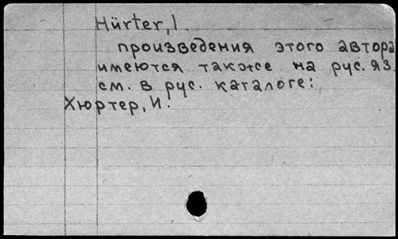 Hürter, I.
произведения этого автора
имеются также на рус. яз.
см. в рус. каталоге:
Хюртер, И.